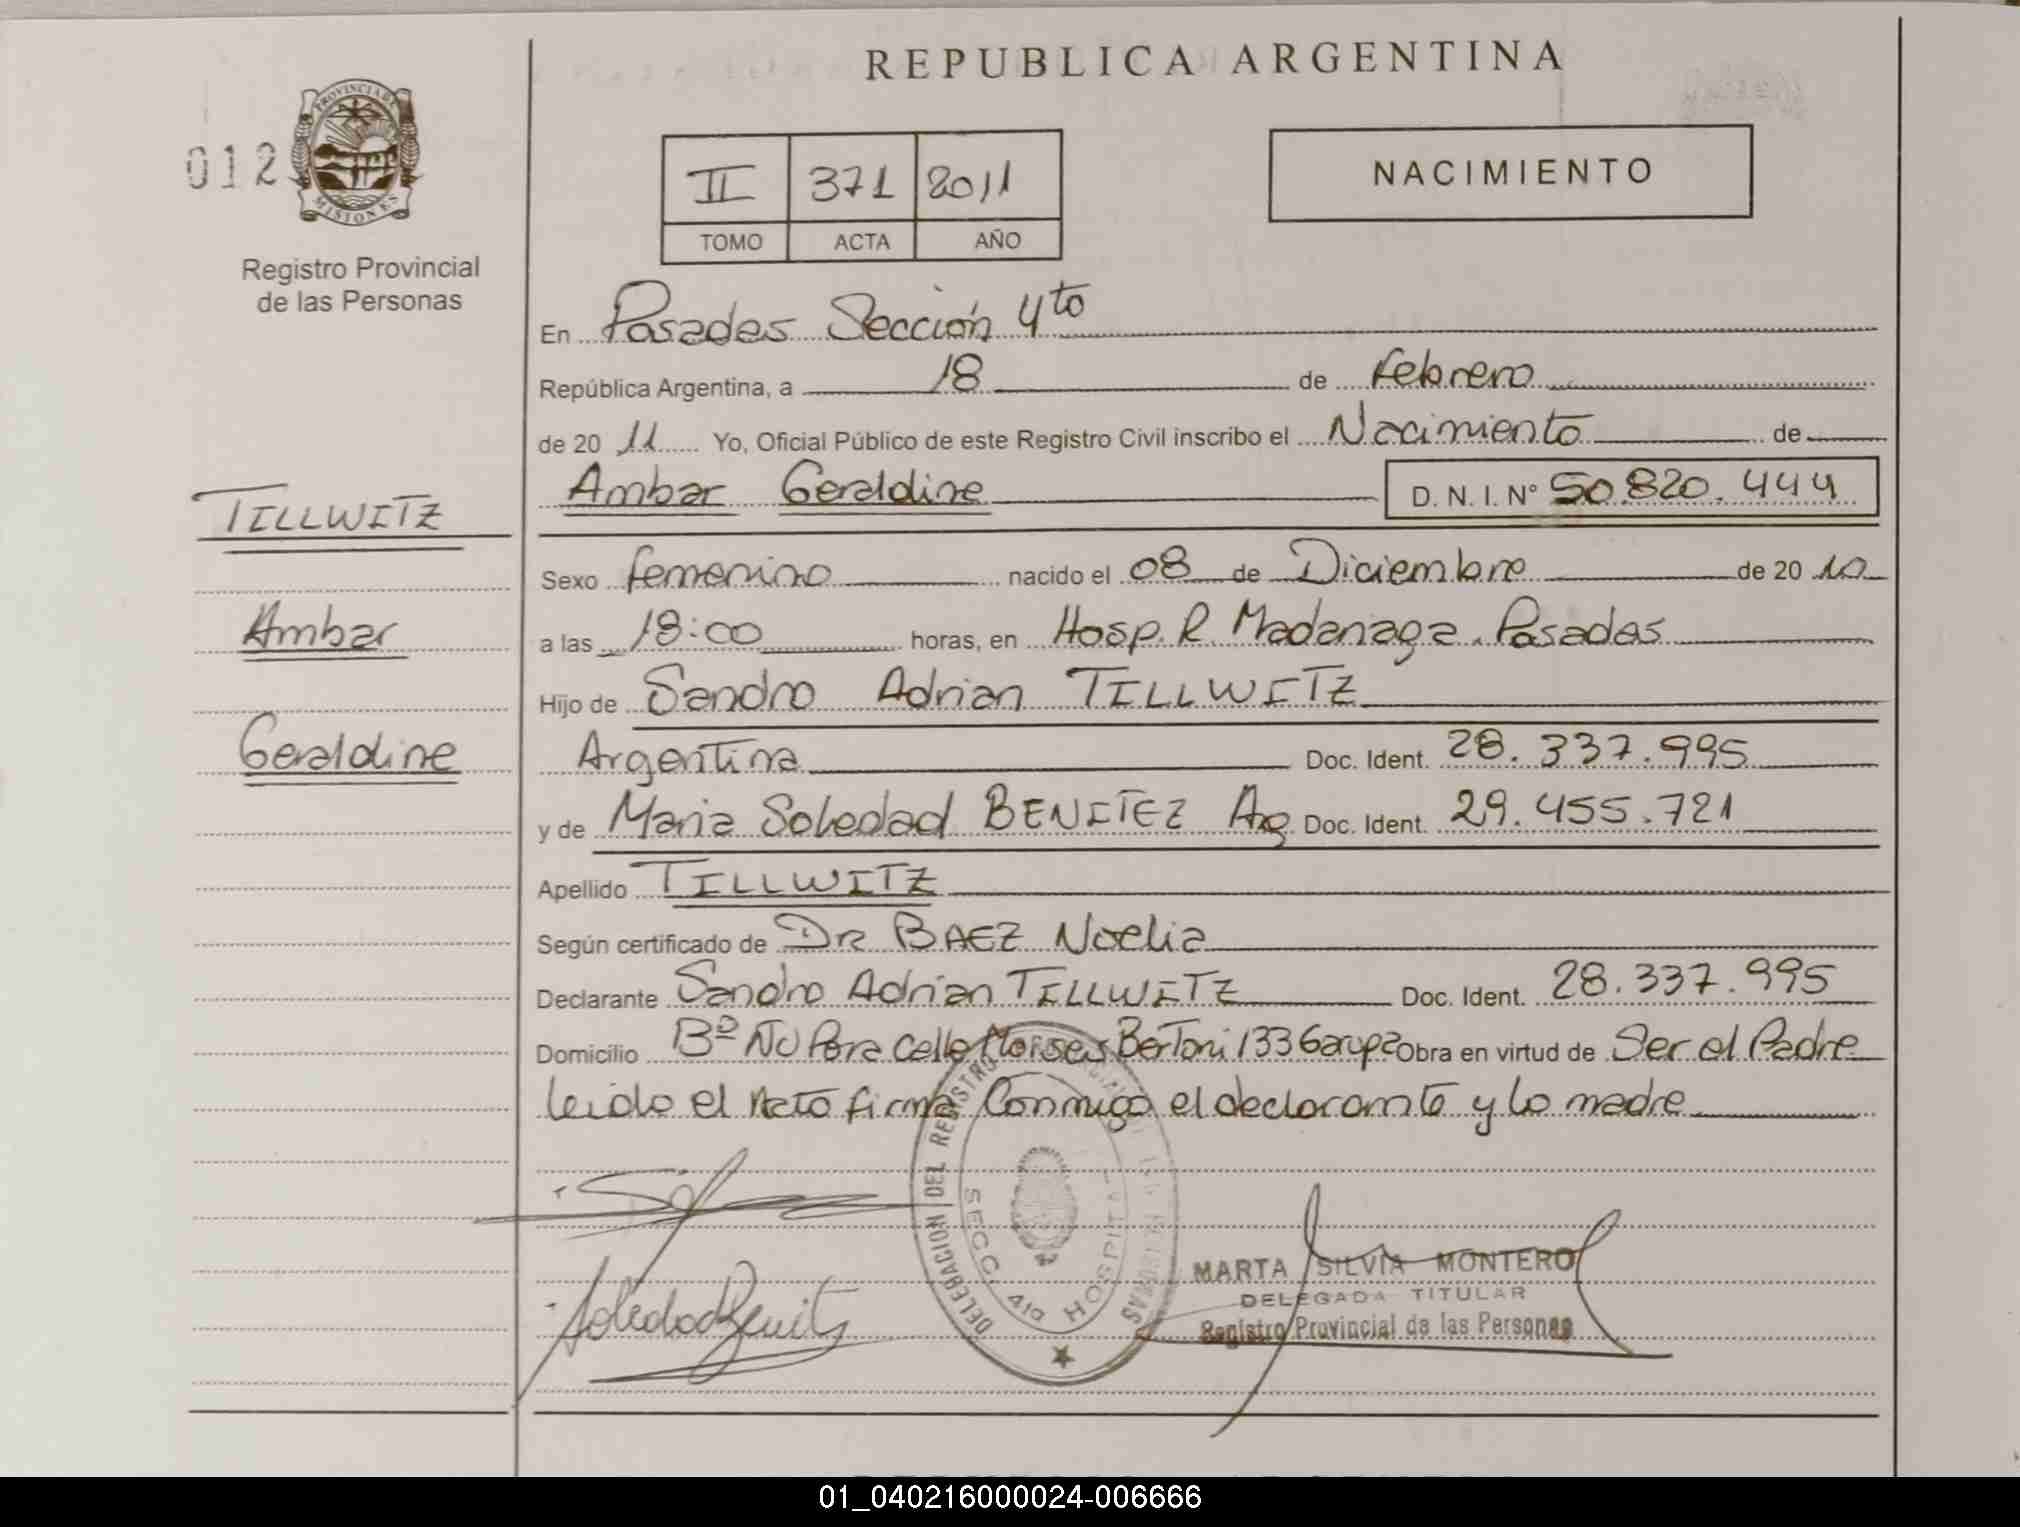 REPUBLICA ARGENTINA
012
PROVINCIA DE MISIONES
Registro Provincial
de las Personas
II 371 2011
TOMO ACTA AÑO
NACIMIENTO
En Posadas Sección 4to
República Argentina, a 18 de Febrero
de 20 11 Yo, Oficial Público de este Registro Civil inscribo el Nacimiento de
Ambar Geraldine D. N. I. Nº 50.820.444
TILLWITZ
Ambar
Geraldine
Sexo femenino nacido el 08 de Diciembre de 20 10
a las 18:00 horas, en Hosp. R. Madariaga. Posadas
Hijo de Sandro Adrian TILLWITZ
Argentina Doc. Ident. 28.337.995
y de Maria Soledad BENITEZ Arg Doc. Ident. 29.455.721
Apellido TILLWITZ
Según certificado de Dra BAEZ Noelia
Declarante Sandro Adrian TILLWITZ Doc. Ident. 28.337.995
Domicilio Bº Ñu Pora Calle Moises Bertoni 133 Garupa Obra en virtud de Ser el Padre
leido el Acto firma Conmigo el declarante y la madre
DELEGACION DEL REGISTRO PROVINCIAL DE LAS PERSONAS
SECC. 4ta HOSPITAL
Soledad Benitz
MARTA SILVIA MONTERO
DELEGADA TITULAR
Registro Provincial de las Personas
01_040216000024-006666